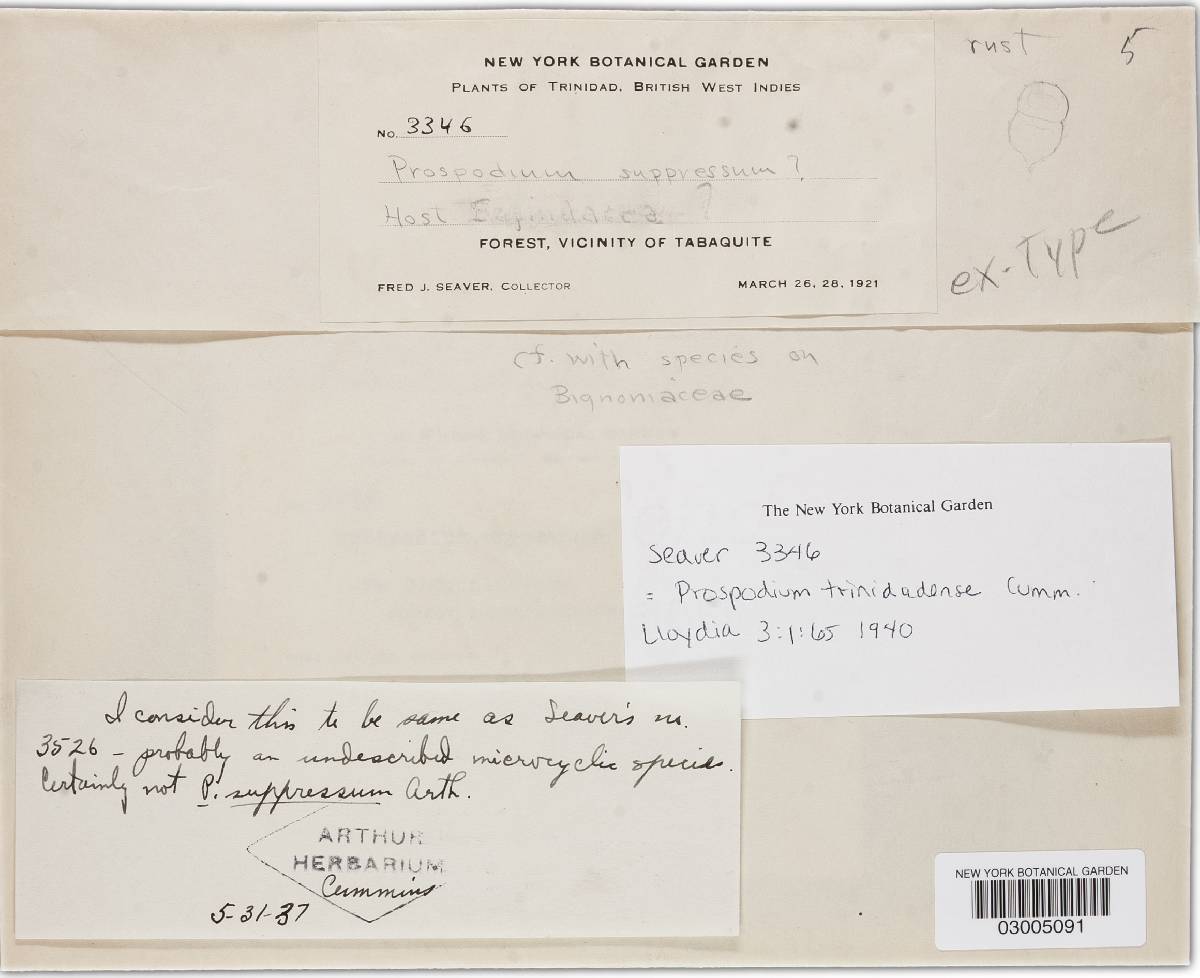 NEW YORK BOTANICAL GARDEN
PLANTS OF TRINIDAD, BRITISH WEST INDIES
No. 3346
Prospodium suppressum?
Host ?
FOREST, VICINITY OF TABAQUITE
FRED J. SEAVER, COLLECTOR MARCH 26, 28, 1921
rust 5
ex-Type
cf. with species on
Bignoniaceae
The New York Botanical Garden
Seaver 3346
= Prospodium trinidadense Cumm.
Lloydia 3:1:65 1940
I consider this to be same as Seaver's no.
3526 - probably an undescribed microcyclic species.
Certainly not P. suppressum Arth.
ARTHUR
HERBARIUM
Cummins
5-31-37
NEW YORK BOTANICAL GARDEN
03005091